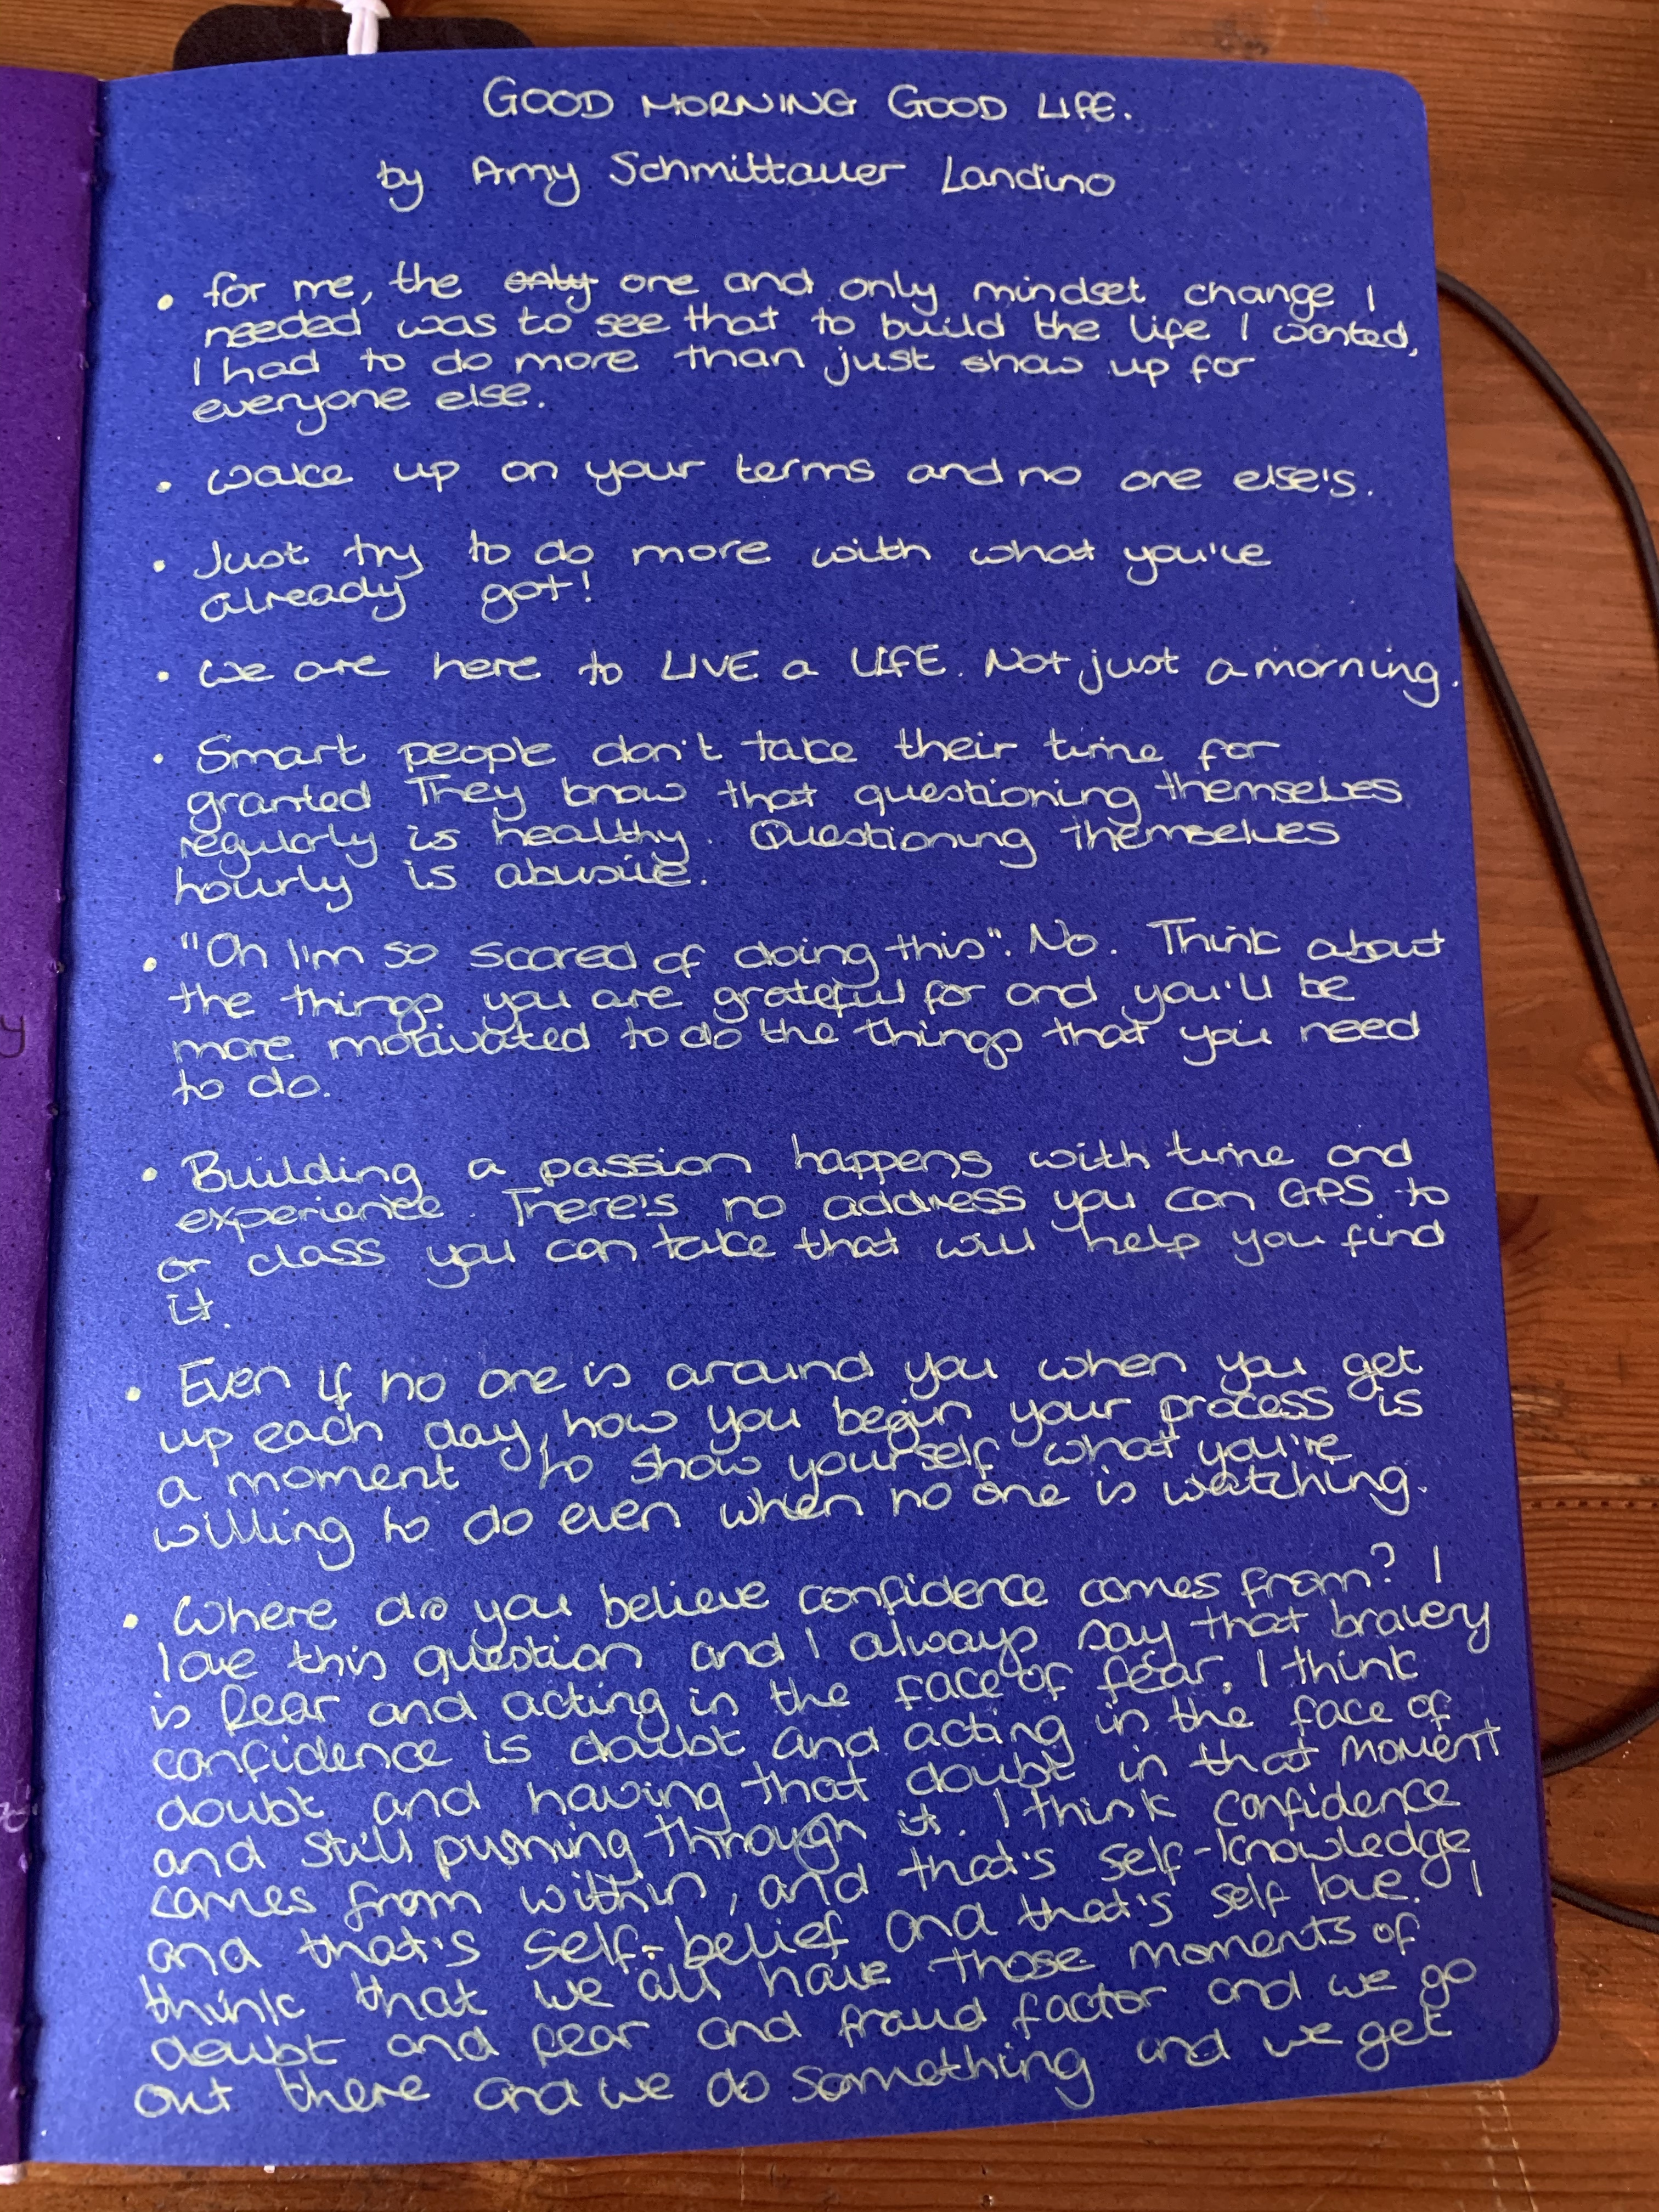 GOOD MORNING GOOD LIFE.
by Amy Schmittauer Landino
• for me, the only one and only mindset change I
needed was to see that to build the life I wanted,
I had to do more than just show up for
everyone else.
• wake up on your terms and no one else's.
• Just try to do more with what you've
already got!
• we are here to LIVE a LIFE. Not just a morning.
• Smart people don't take their time for
granted They know that questioning themselves
regularly is healthy. Questioning themselves
hourly is abusive.
• "Oh I'm so scared of doing this". No. Think about
the things you are grateful for and you'll be
more motivated to do the things that you need
to do.
• Building a passion happens with time and
experience. There's no address you can GPS to
or class you can take that will help you find
it.
• Even if no one is around you when you get
up each day, how you begin your process is
a moment to show yourself what you're
willing to do even when no one is watching.
• Where do you believe confidence comes from? I
love this question and I always say that bravery
is fear and acting in the face of fear. I think
confidence is doubt and acting in the face of
doubt and having that doubt in that moment
and still pushing through it. I think confidence
comes from within, and that's self-knowledge
and that's self-belief and that's self love. I
think that we all have those moments of
doubt and fear and fraud factor and we go
out there and we do something and we get